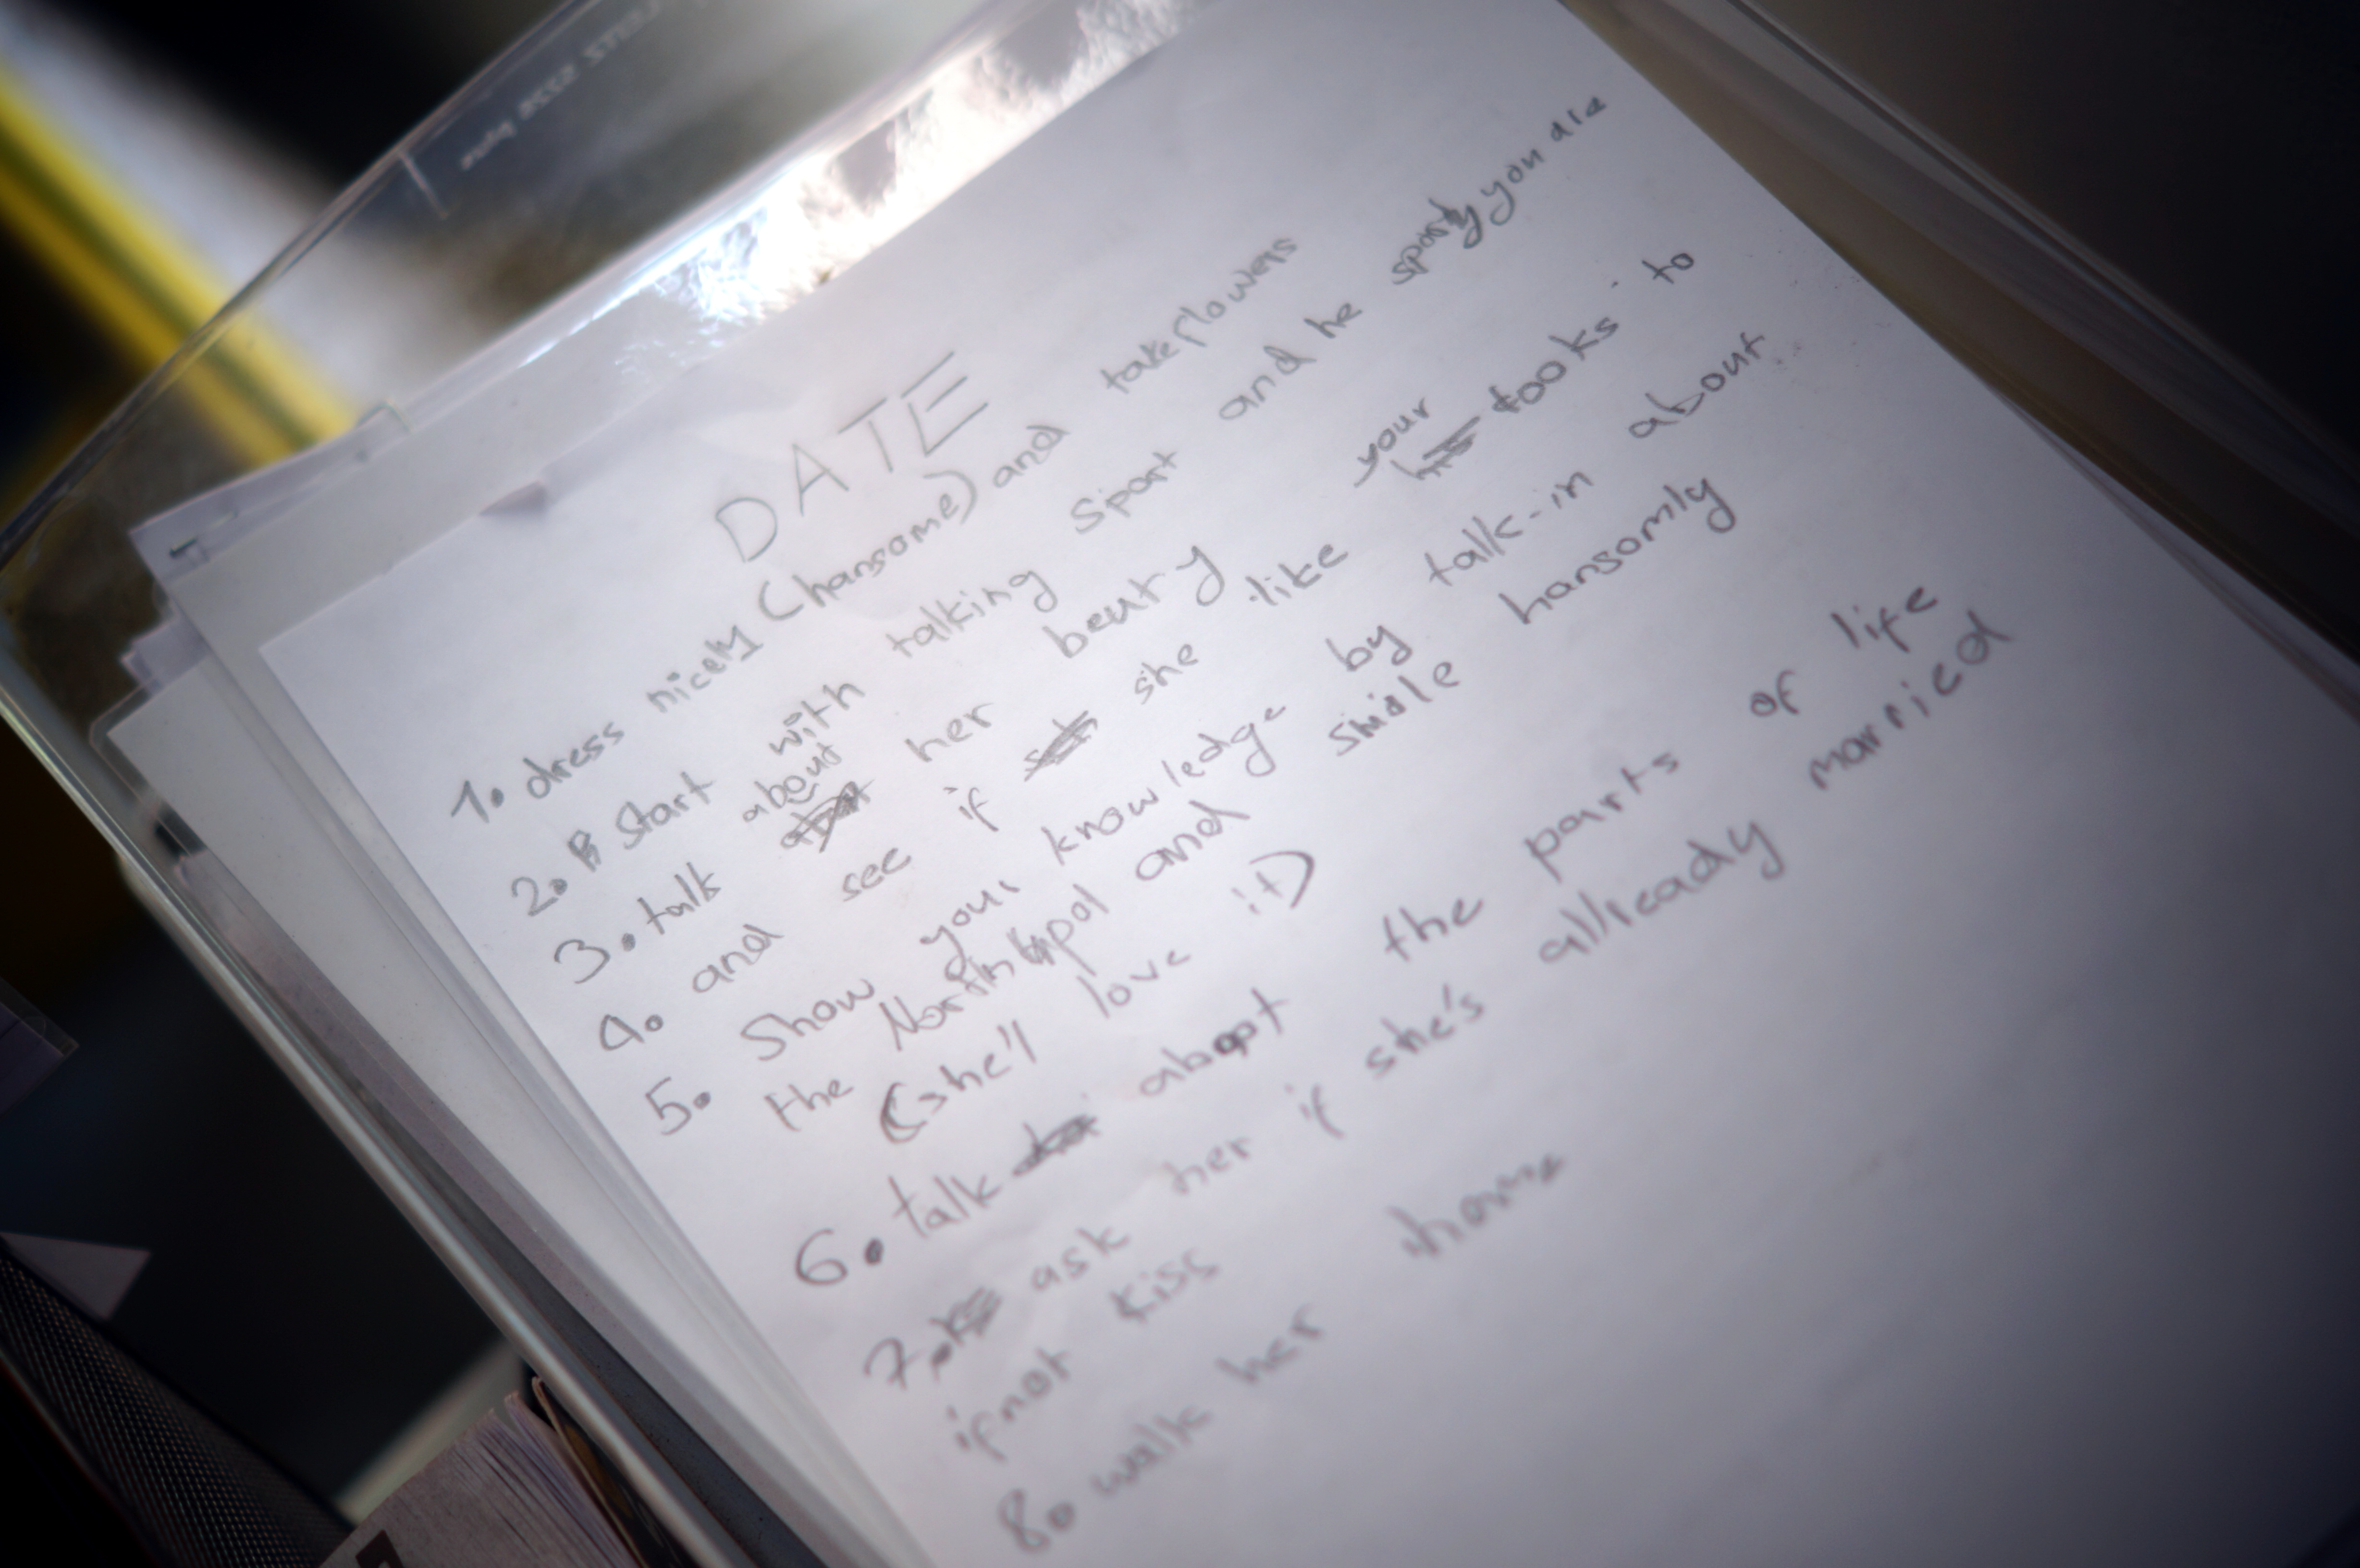 DATE
1. dress nicely (hansome) and take flowers
2. Start with talking Sport and he sporty you are
3. talk about her beuty
4. and see if she like your looks to
5. Show your knowledge by talk-in about
the North pol and smile hansomly
(she'll love it)
6. talk about the parts of life
7. ask her if she's allready married
if not kiss
8. walk her home